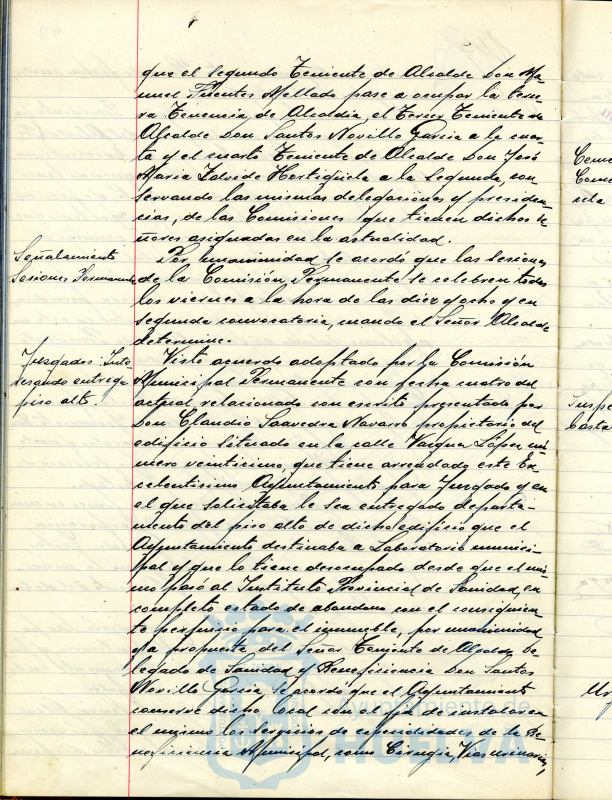 que el segundo Teniente de Alcalde Don Ma-
nuel Fuentes Mellado pase a ocupar la terce-
ra Tenencia de Alcaldia, el Tercer Teniente de
Alcalde Don Santos Novillo Garcia a la cuar-
ta y el cuarto Teniente de Alcalde Don José
Maria Hortigüela a la segunda, con-
servando las mismas delegaciones y presiden-
cias, de las Comisiones que tienen dichos se-
ñores asignadas en la actualidad.
Señalamiento
Sesiones Permanente
Por unanimidad se acordó que las sesiones
de la Comisión Permanente se celebren todos
los viernes a la hora de las diez y ocho y en
segunda convocatoria, cuando el Señor Alcalde
determine.
Juzgados: Inte-
resando entrega
piso alto.
Visto acuerdo adoptado por la Comisión
Municipal Permanente con fecha cuatro del
actual, relacionado con escrito presentado por
Don Claudio Saavedra Navarro propietario del
edificio situado en la calle Vazquez López nú-
mero veintisimo, que tiene arrendado este Ex-
celentisimo Ayuntamiento para Juzgado y en
el que solicitaba le sea entregado departa-
mento del piso alto de dicho edificio que el
Ayuntamiento destinaba a Laboratorio munici-
pal y que lo tiene desocupado desde que el mis-
mo pasó al Instituto Provincial de Sanidad, en
completo estado de abandono con el consiguien-
te perjuicio para el inmueble, por unanimidad
y a propuesta del Señor Teniente de Alcalde De-
legado de Sanidad y Beneficiencia Don Santos
Novillo Garcia se acordó que el Ayuntamiento
conserve dicho local con el fin de instalar en
el mismo los servicios de especialidades de la Be-
neficiencia Municipal, como Cirugia, Vias urinarias,
Ayuntamiento de
HUELVA